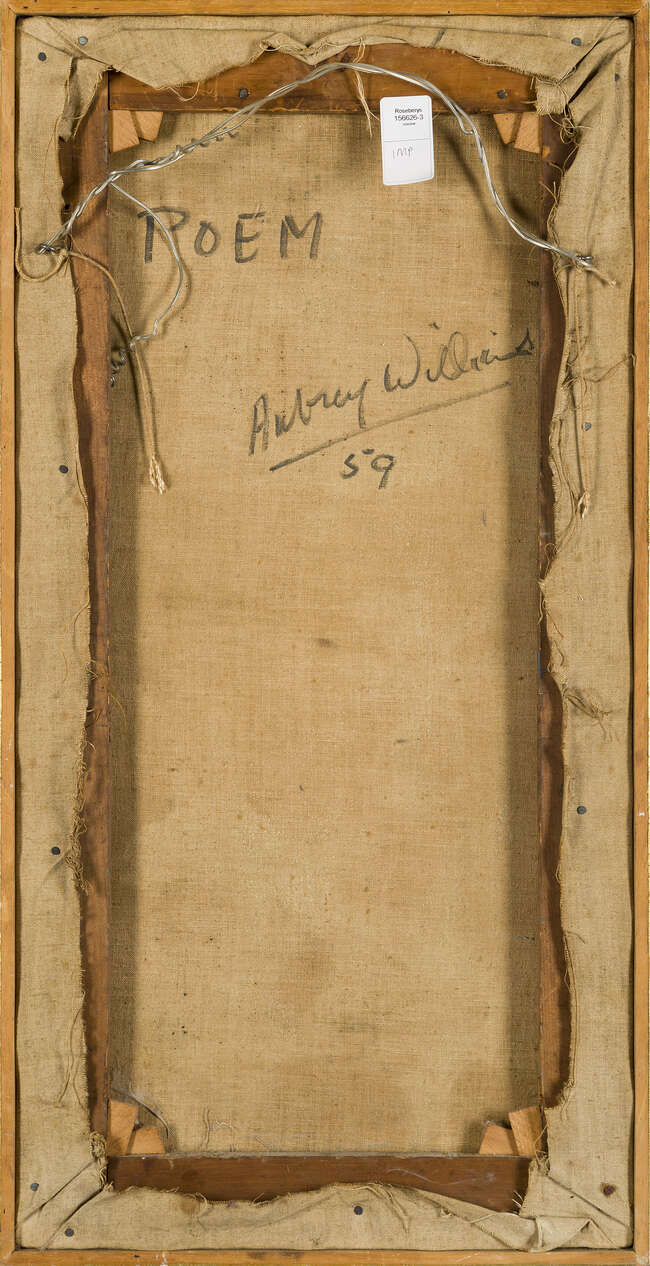 Roseberys
156626-3
1MP
POEM
Aubrey Williams
59